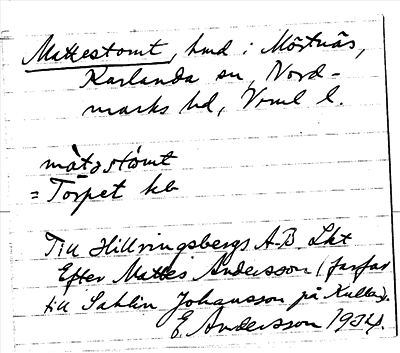 Mattestomt, hmd i Mörtnäs,
Karlanda sn, Nord-
marks hd, Vrml l.
màtəstòmt
= Torpet kb
Till Hillringsbergs A-B. Lht
Efter Mattes Andersson (farfar
till Sahlin Johansson på Kullen).
E. Andersson 1934.